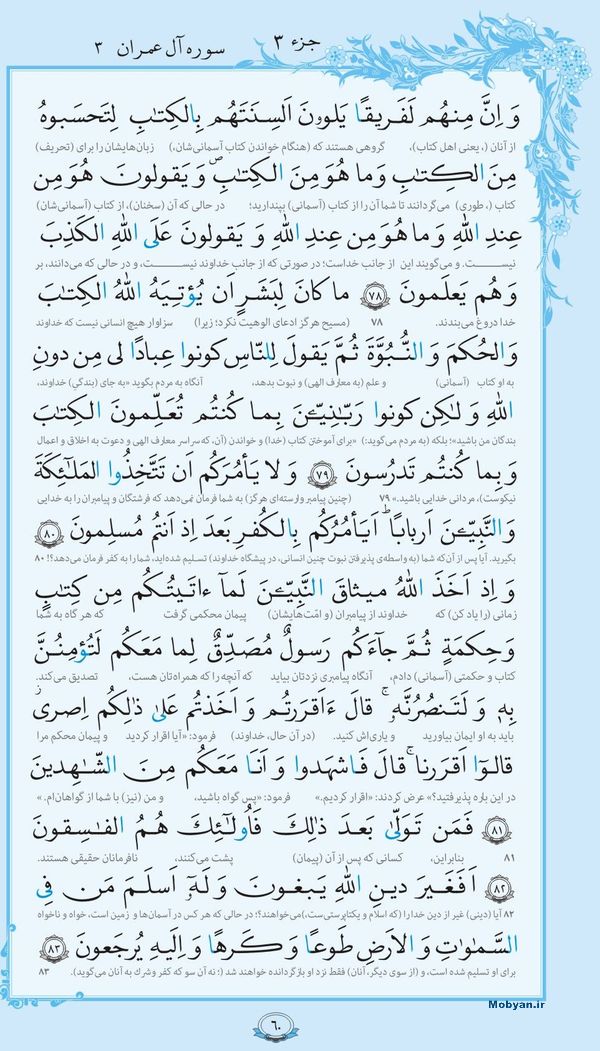 جزء ۳
سوره آل عمران ۳
وَ اِنَّ مِنهُم لَفَریقًا یَلوونَ اَلسِنَتَهُم بِالکِتٰبِ لِتَحسَبوهُ
از آنان (، یعنی اهل کتاب)، گروهی هستند که (هنگام خواندن کتاب آسمانی‌شان)، زبان‌هایشان را برای (تحریف)
مِنَ الکِتٰبِ وَما هُوَ مِنَ الکِتٰبِۖ وَ یَقولونَ هُوَ مِن
کتاب (، طوری) می‌گردانند تا شما آن را از کتاب (آسمانی) بپندارید؛ در حالی که آن (سخنان)، از کتاب (آسمانی‌شان)
عِندِ اللهِ وَ ما هُوَ مِن عِندِ اللهِ وَ یَقولونَ عَلَی اللهِ الکَذِبَ
نیست. و می‌گویند این از جانب خداست؛ در صورتی که از جانب خداوند نیست، و در حالی که می‌دانند، بر
وَ هُم یَعلَمونَ ﴿۷۸﴾ ما کانَ لِبَشَرٍ اَن یُؤتِیَهُ اللهُ الکِتٰبَ
خدا دروغ می‌بندند. ۷۸ (مسیح هرگز ادعای الوهیت نکرد؛ زیرا) سزاوار هیچ انسانی نیست که خداوند
وَالحُکمَ وَ النُّبُوَّةَ ثُمَّ یَقولَ لِلنّاسِ کونوا عِبادًا لی مِن دونِ
به او کتاب (آسمانی) و علم (به معارف الهی) و نبوت بدهد، آنگاه به مردم بگوید «به جای (بندگی) خداوند،
اللهِ وَ لٰکِن کونوا رَبّٰنِیّـٖنَ بِما کُنتُم تُعَلِّمونَ الکِتٰبَ
بندگان من باشید»؛ بلکه (به مردم می‌گوید:) «برای آموختن کتاب (خدا) و خواندن (آن، که سراسر معارف الهی و دعوت به اخلاق و اعمال
وَ بِما کُنتُم تَدرُسونَ ﴿۷۹﴾ وَ لا یَأمُرَکُم اَن تَتَّخِذُوا المَلٰئِکَةَ
نیکوست)، مردانی خدایی باشید.» ۷۹ (چنین پیامبر وارسته‌ای هرگز) به شما فرمان نمی‌دهد که فرشتگان و پیامبران را به خدایی
وَالنَّبِیّـٖنَ اَربابًاۗ اَیَأمُرُکُم بِالکُفرِ بَعدَ اِذ اَنتُم مُسلِمونَ ﴿۸۰﴾
بگیرید. آیا پس از آن که شما (به واسطه‌ی پذیرفتن نبوت چنین انسانی، در پیشگاه خداوند) تسلیم شده‌اید، شما را به کفر فرمان می‌دهد؟! ۸۰
وَ اِذ اَخَذَ اللهُ میثاقَ النَّبِیّـٖنَ لَمآ ءاتَیتُکُم مِن کِتٰبٍ
زمانی (را یاد کن) که خداوند از پیامبران (و امّت‌هایشان) پیمان محکمی گرفت که هر گاه به شما
وَحِکمَةٍ ثُمَّ جآءَکُم رَسولٌ مُصَدِّقٌ لِما مَعَکُم لَتُؤمِنُنَّ
کتاب و حکمتی (آسمانی) دادم، آنگاه پیامبری نزدتان بیاید که آنچه را که همراه‌تان هست، تصدیق می‌کند.
بِهٖ وَ لَتَنصُرُنَّهٗۚ قالَ ءَاَقرَرتُم وَ اَخَذتُم عَلیٰ ذٰلِکُم اِصریۖ
باید به او ایمان بیاورید و یاری‌اش کنید. (در آن حال، خداوند) فرمود: «آیا اقرار کردید و پیمان محکم مرا
قالوٓا اَقرَرناۚ قالَ فَاشهَدوا وَ اَنَا مَعَکُم مِنَ الشّٰهِدینَ
در این باره پذیرفتید؟» عرض کردند: «اقرار کردیم.» فرمود: «پس گواه باشید، و من (نیز) با شما از گواهان‌ام.»
﴿۸۱﴾ فَمَن تَوَلّیٰ بَعدَ ذٰلِکَ فَاُولٰئِکَ هُمُ الفٰسِقونَ
۸۱ بنابراین، کسانی که پس از آن (پیمان) پشت می‌کنند، نافرمانان حقیقی هستند.
﴿۸۲﴾ اَفَغَیرَ دینِ اللهِ یَبغونَ وَ لَهٗٓ اَسلَمَ مَن فِی
۸۲ آیا (دینی) غیر از دین خدا را (که اسلام و یکتاپرستی‌ست،) می‌خواهند؟؛ در حالی که هر کس در آسمان‌ها و زمین است، خواه و ناخواه
السَّمٰوٰتِ وَ الاَرضِ طَوعًا وَ کَرهًا وَ اِلَیهِ یُرجَعونَ ﴿۸۳﴾
برای او تسلیم شده است، و (از سوی دیگر، آنان) فقط نزد او بازگردانده خواهند شد (؛ نه آن سو که کفر و شرک به آنان می‌گوید). ۸۳
Mobyan.ir
۶۰